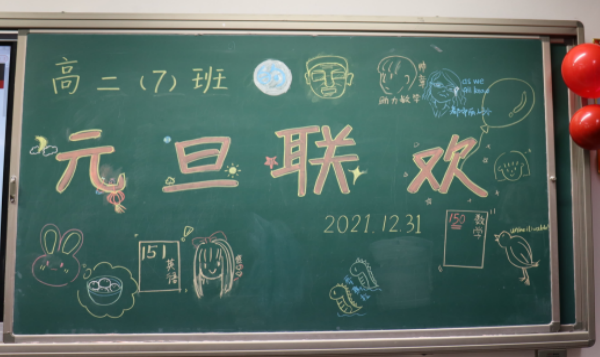 高二（7）班
as we
all know
元旦联欢
2021.12.31
151
英语
150
数学